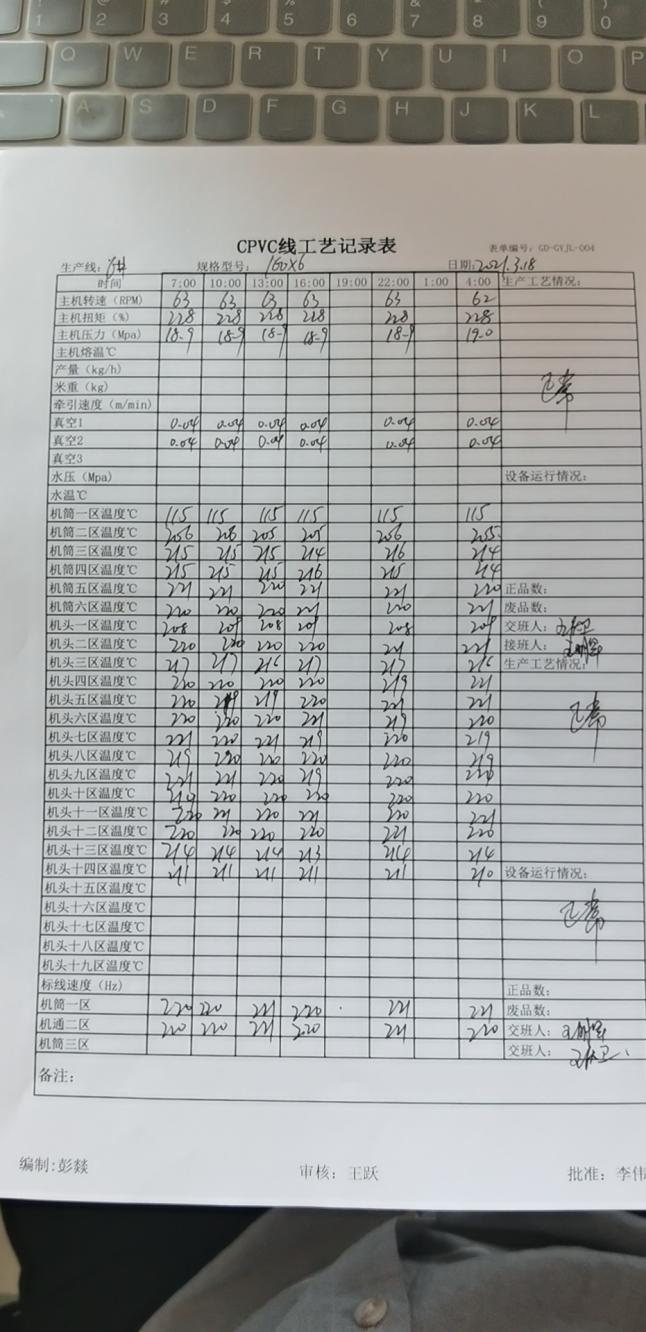 3 4 5 6 7 8 9 0
Q W E R T Y U I O P
A S D F G H J K L
CPVC线工艺记录表
表单编号：GD-GYJL-004
生产线： 规格型号： 160×6 日期：2021.3.18
时间 7:00 10:00 13:00 16:00 19:00 22:00 1:00 4:00 生产工艺情况：
主机转速（RPM） 63 63 63 63 63 62
主机扭矩（%） 228 228 228 228 228 228
主机压力（Mpa） 18.9 18.9 18.9 18.9 18.9 19.0
主机熔温℃
产量（kg/h）
米重（kg） 正常
牵引速度（m/min）
真空1 0.04 0.04 0.04 0.04 0.04 0.04
真空2 0.04 0.04 0.04 0.04 0.04 0.04
真空3
水压（Mpa） 设备运行情况：
水温℃
机筒一区温度℃ 115 115 115 115 115 115
机筒二区温度℃ 206 205 205 206 205
机筒三区温度℃ 215 215 215 214 216 214
机筒四区温度℃ 215 215 215 216 215 214
机筒五区温度℃ 221 221 220 221 221 220 正品数：
机筒六区温度℃ 220 220 220 221 220 221 废品数：
机头一区温度℃ 208 209 208 209 208 209 交班人：
机头二区温度℃ 220 220 220 220 221 221 接班人：
机头三区温度℃ 217 217 216 217 217 216 生产工艺情况：
机头四区温度℃ 220 220 220 220 219 221
机头五区温度℃ 220 219 219 220 221 221
机头六区温度℃ 220 220 220 221 219 220 正常
机头七区温度℃ 221 220 221 219 220 219
机头八区温度℃ 219 220 220 220 220 219
机头九区温度℃ 221 221 220 219 220 220
机头十区温度℃ 219 220 220 220 220 220
机头十一区温度℃ 220 221 220 221 220 221
机头十二区温度℃ 220 220 220 220 221 220
机头十三区温度℃ 214 214 214 213 214 214
机头十四区温度℃ 211 211 211 211 211 210 设备运行情况：
机头十五区温度℃
机头十六区温度℃ 正常
机头十七区温度℃
机头十八区温度℃
机头十九区温度℃
标线速度（Hz） 正品数：
机筒一区 220 220 221 220 221 221 废品数：
机通二区 220 220 221 220 221 220 交班人：
机筒三区 交班人：
备注：
编制:彭燚 审核：王跃 批准：李伟